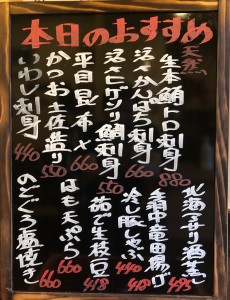 本日のおすすめ
天然
生本鮪トロ刺身 880
活〆かんぱち刺身 660
活〆ヒゲソリ鯛刺身 550
平目昆布〆 660
かつお土佐造り 550
いわし刺身 440
北海アサリ酒蒸し 495
竜田揚げ 418
冷し豚しゃぶ 440
茹で生枝豆 418
はも天ぷら 660
のどぐろ塩焼き 660